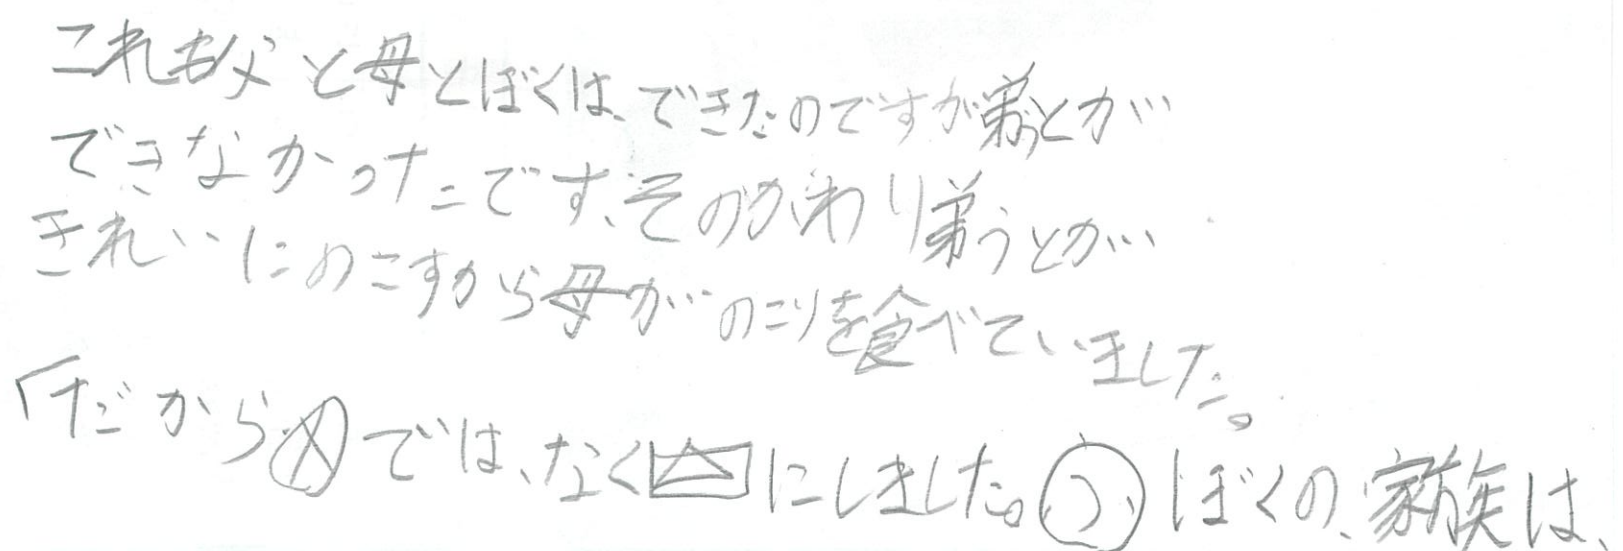 これも父と母とぼくは、できたのですが弟うとが
できなかったです、そのかわり弟うとが
きれいにのこすから母がのこりを食べていました。
「だから ではなく にしました。 ぼくの、家族は、